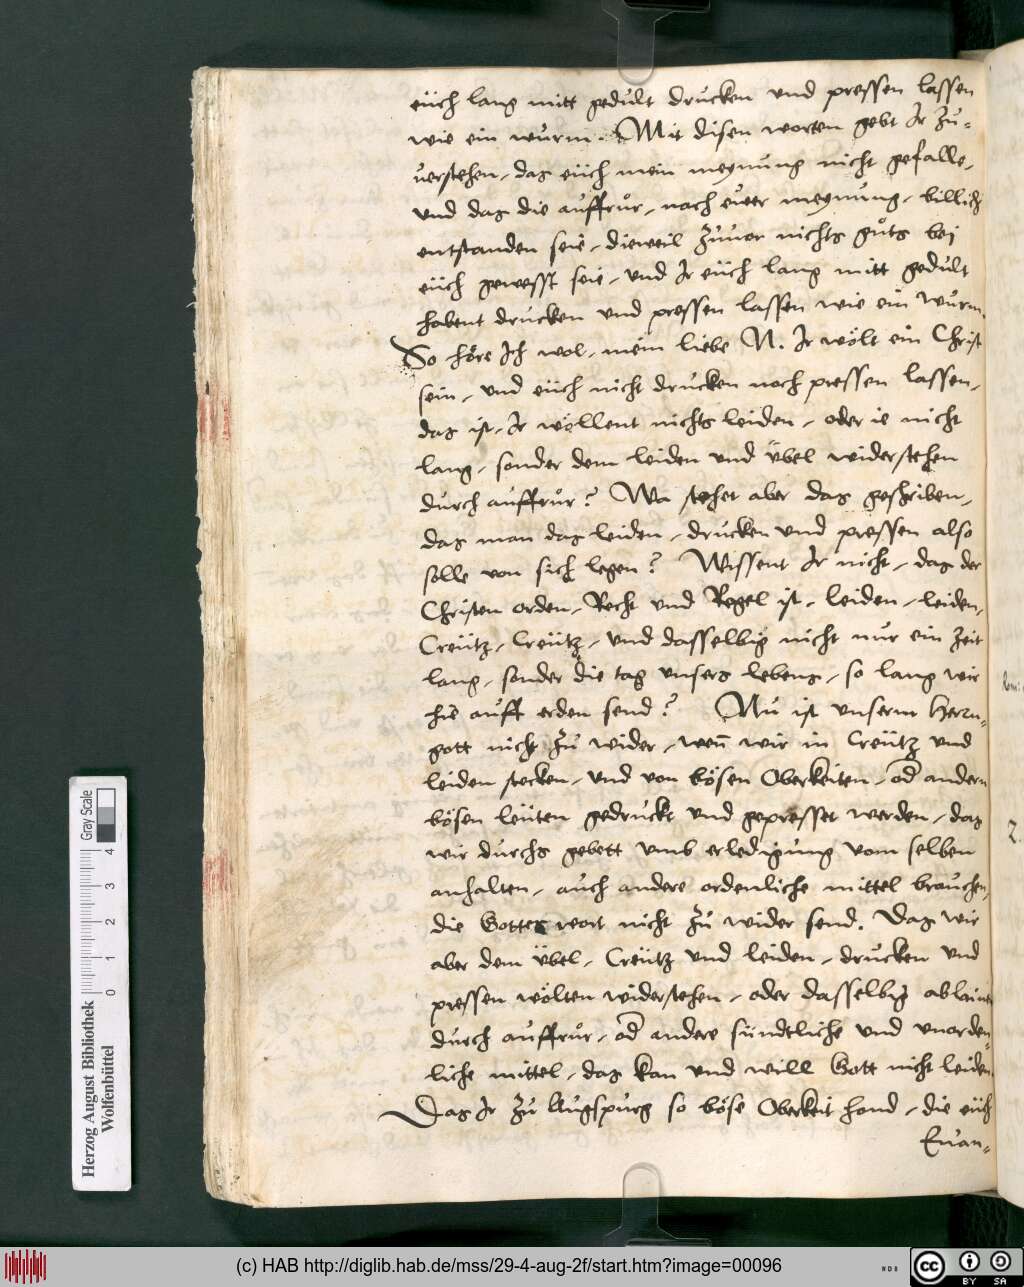 eüch lang mitt gedult drucken vnd pressen lassen
wie ein wurm. Mit disen worten gebt Ir zu-
uerstehen, das eüch mein meynung nicht gefalle,
vnd das die auffrůr, nach ewer meynung, billich
entstanden seie, dieweil zuuor nichts gůts bei
eüch gewesst seie, vnd Ir eüch lang mitt gedult
habent drucken vnd pressen lassen wie ein wurm.
So höre Ich wol, mein liebe N. Ir wölt ein Christ
sein, vnd eüch nicht drucken noch pressen lassen,
das ist, Ir wöllent nichts leiden, oder ie nicht
lang, sonder dem leiden vnd übel widerstehen
durch auffrůr? Wa stehet aber das geschriben,
das man das leiden, drucken vnd pressen also
solle von sich legen? Wissent Ir nicht, das der
Christen orden, Recht vnd Regel ist, leiden, leiden,
Creütz, Creütz, vnd dasselbig nicht nur ein zeit
lang, sonder die tag vnsers lebens, so lang wir
hie auff erden send? Nu ist vnserm Herrn-
gott nicht zů wider, wen̄ wir in Creütz vnd
leiden stecken, vnd von bösen Oberkeiten, od andern
bösen leüten gedruckt vnd gepresset werden, das
wir durchs gebett vmb erledigung vom selben
anhalten, auch andere ordenliche mittel brauchen,
die Gottes wort nicht zů wider send. Das wir
aber dem übel, Creütz vnd leiden, drucken vnd
pressen wölten widerstehen, oder dasselbig ablainen
durch auffrůr, od andere sündtliche vnd vnorden-
liche mittel, das kan vnd will Gott nicht leiden.
Das Ir zů Augspurg so böse Oberkeit hond, die eüch
Euan-
Herzog August Bibliothek
Wolfenbüttel
0 1 2 3 4
Gray Scale
(c) HAB http://diglib.hab.de/mss/29-4-aug-2f/start.htm?image=00096
cc BY SA